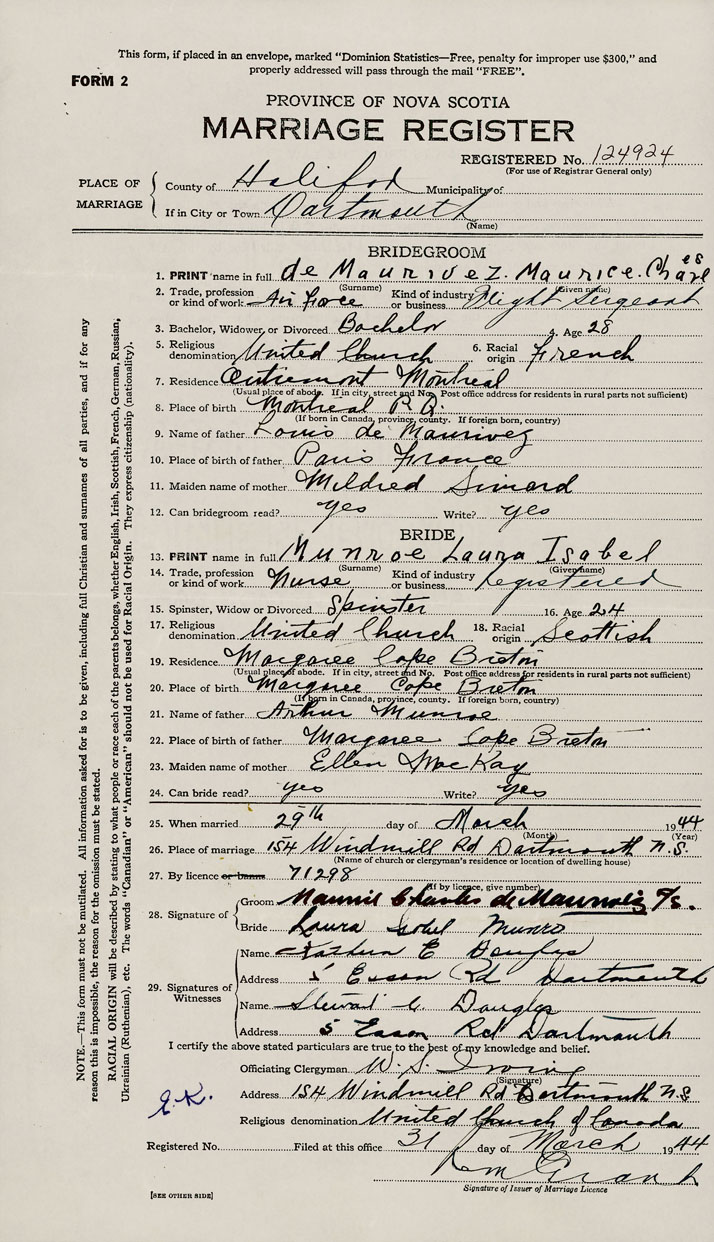 This form, if placed in an envelope, marked "Dominion Statistics—Free, penalty for improper use $300," and
properly addressed will pass through the mail "FREE".
FORM 2
PROVINCE OF NOVA SCOTIA
MARRIAGE REGISTER
REGISTERED No. 124924
(For use of Registrar General only)
PLACE OF MARRIAGE
County of Halifax Municipality of
If in City or Town Dartmouth
(Name)
BRIDEGROOM
1. PRINT name in full de Maurivez. Maurice. Charles
(Surname) (Given name)
2. Trade, profession or kind of work Air Force Kind of industry or business Flight Sergeant
3. Bachelor, Widower, or Divorced Bachelor 4. Age 28
5. Religious denomination United Church 6. Racial origin French
7. Residence Outremont Montreal
(Usual place of abode. If in city, street and No. Post office address for residents in rural parts not sufficient)
8. Place of birth Montreal P.Q.
(If born in Canada, province, county. If foreign born, country)
9. Name of father Louis de Maurivez
10. Place of birth of father Paris France
11. Maiden name of mother Mildred Simard
12. Can bridegroom read? yes Write? yes
BRIDE
13. PRINT name in full Munroe Laura Isabel
(Surname) (Given name)
14. Trade, profession or kind of work Nurse Kind of industry or business registered
15. Spinster, Widow or Divorced Spinster 16. Age 24
17. Religious denomination United Church 18. Racial origin Scottish
19. Residence Margaree Cape Breton
(Usual place of abode. If in city, street and No. Post office address for residents in rural parts not sufficient)
20. Place of birth Margaree Cape Breton
(If born in Canada, province, county. If foreign born, country)
21. Name of father Arthur Munroe
22. Place of birth of father Margaree Cape Breton
23. Maiden name of mother Ellen MacKay
24. Can bride read? yes Write? yes
25. When married 29th day of March 1944
(Month) (Year)
26. Place of marriage 154 Windmill Rd Dartmouth N.S.
(Name of church or clergyman's residence or location of dwelling house)
27. By licence or banns 71298
(If by licence, give number)
28. Signature of
Groom Maurice Charles de Maurivez F/S.
Bride Laura Isobel Munro
29. Signatures of Witnesses
Name E Douglas
Address 5 Esson Rd Dartmouth
Name Stewart Douglas
Address 5 Esson Rd Dartmouth
I certify the above stated particulars are true to the best of my knowledge and belief.
Officiating Clergyman W. S. Irving
(Signature)
Address 154 Windmill Rd Dartmouth N.S.
Religious denomination United Church of Canada
E.K.
Registered No. Filed at this office 31 day of March 1944
Signature of Issuer of Marriage Licence
[SEE OTHER SIDE]
NOTE.—This form must not be mutilated. All information asked for is to be given, including full Christian and surnames of all parties, and if for any
reason this is impossible, the reason for the omission must be stated.
RACIAL ORIGIN will be described by stating to what people or race each of the parents belongs, whether English, Irish, Scottish, French, German, Russian,
Ukrainian (Ruthenian), etc. The words "Canadian" or "American" should not be used for Racial Origin. They express citizenship (nationality).